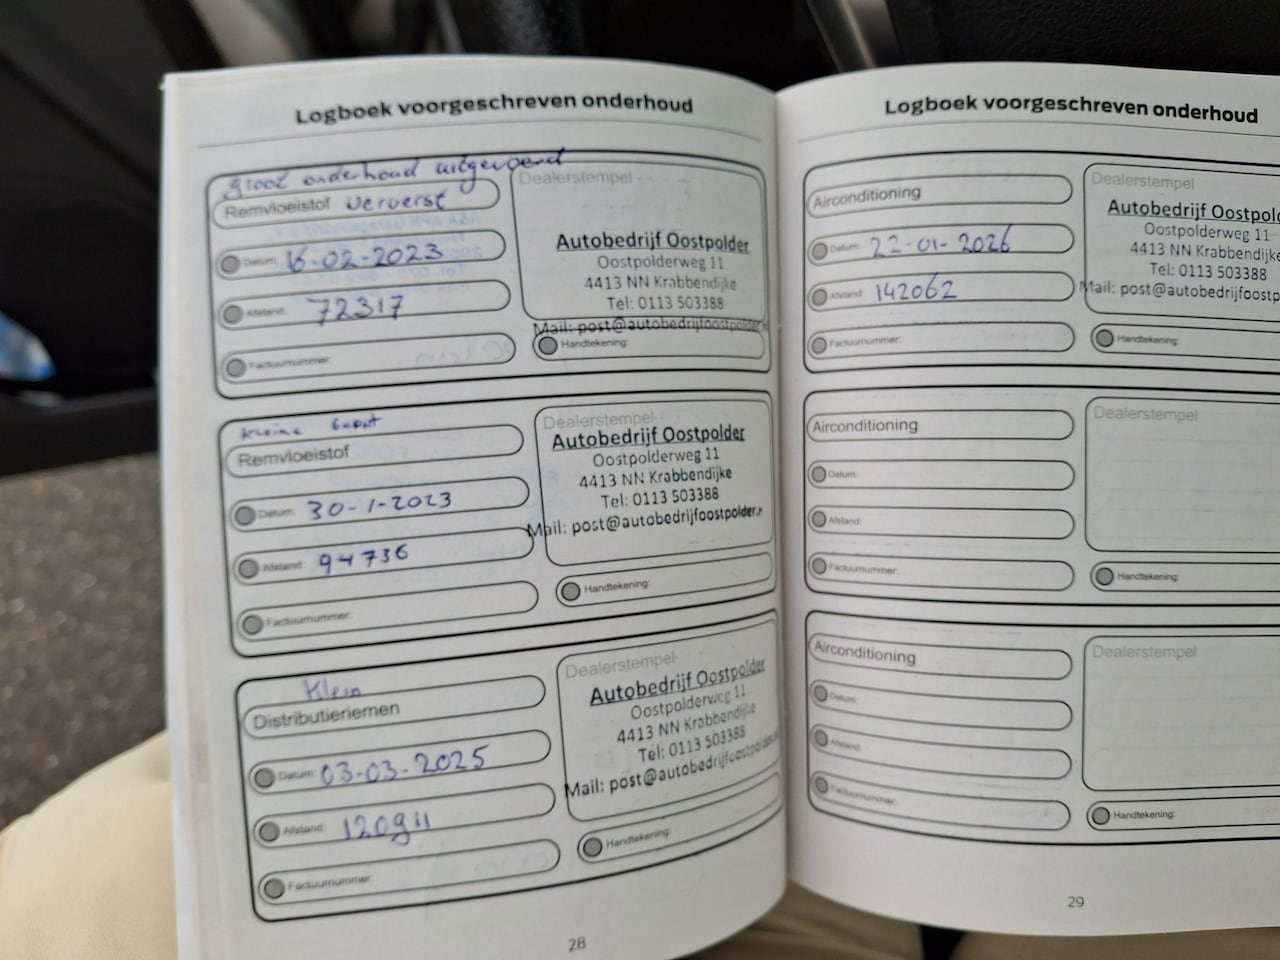 Logboek voorgeschreven onderhoud
groot onderhoud uitgevoerd
Remvloeistof ververst
Datum: 16-02-2023
Afstand: 72317
Factuurnummer:
Dealerstempel
Autobedrijf Oostpolder
Oostpolderweg 11
4413 NN Krabbendijke
Tel: 0113 503388
Mail: post@autobedrijfoostpolder.n
Handtekening:
kleine beurt
Remvloeistof
Datum: 30-1-2023
Afstand: 94736
Factuurnummer:
Dealerstempel
Autobedrijf Oostpolder
Oostpolderweg 11
4413 NN Krabbendijke
Tel: 0113 503388
Mail: post@autobedrijfoostpolder.n
Handtekening:
Klein
Distributieriemen
Datum: 03-03-2025
Afstand: 120911
Factuurnummer:
Dealerstempel
Autobedrijf Oostpolder
Oostpolderweg 11
4413 NN Krabbendijke
Tel: 0113 503388
Mail: post@autobedrijfoostpolder.n
Handtekening:
28
Logboek voorgeschreven onderhoud
Airconditioning
Datum: 22-01-2026
Afstand: 142062
Factuurnummer:
Dealerstempel
Autobedrijf Oostpol
Oostpolderweg 11
4413 NN Krabbendijke
Tel: 0113 503388
Mail: post@autobedrijfoostp
Handtekening:
Airconditioning
Datum:
Afstand:
Factuurnummer:
Dealerstempel
Handtekening:
Airconditioning
Datum:
Afstand:
Factuurnummer:
Dealerstempel
Handtekening:
29